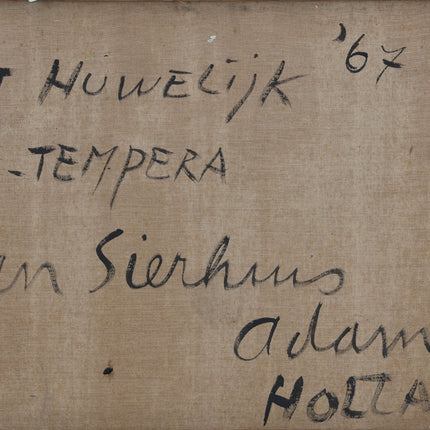 T HUWELIJK '67
-TEMPERA
en Sierhuis
adam
HOLLA